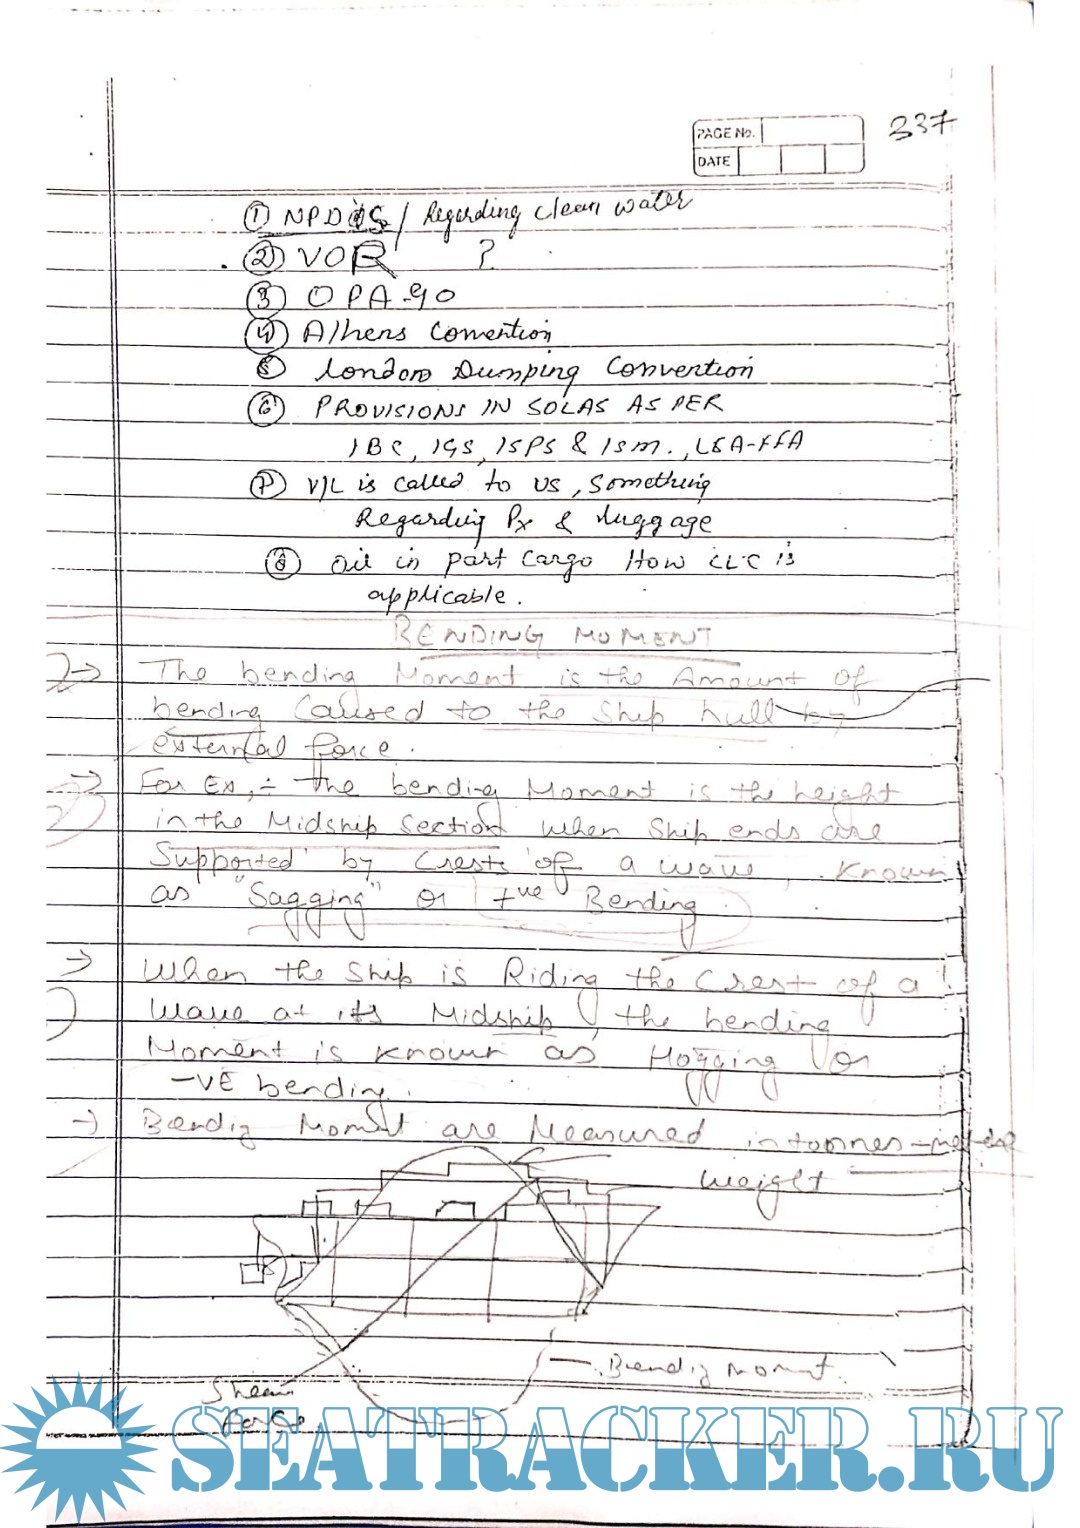 PAGE No.
DATE
337
① NPDES / Regarding clean water
② VOR ?
③ OPA-90
④ Athens Convention
⑤ London Dumping Convention
⑥ PROVISIONS IN SOLAS AS PER
IBC, IGS, ISPS & ISM., LSA-FFA
⑦ V/L is called to US, Something
Regarding Px & luggage
⑧ Oil in part cargo How CLC is
applicable.
BENDING MOMENT
→ The bending Moment is the Amount of
bending Caused to the Ship hull by
external force.
→ For Ex,÷ The bending Moment is the height
in the Midship Section when Ship ends are
Supported by Crests of a wave, known
as "Sagging" or +ve Bending
→ When the Ship is Riding the Crest of a
wave at its Midship, the bending
Moment is known as Hogging or
-VE bending.
→ Bendig Moment are Measured in tonnes-metre
weight
Bendig Moment
Shear
force
SEATRACKER.RU